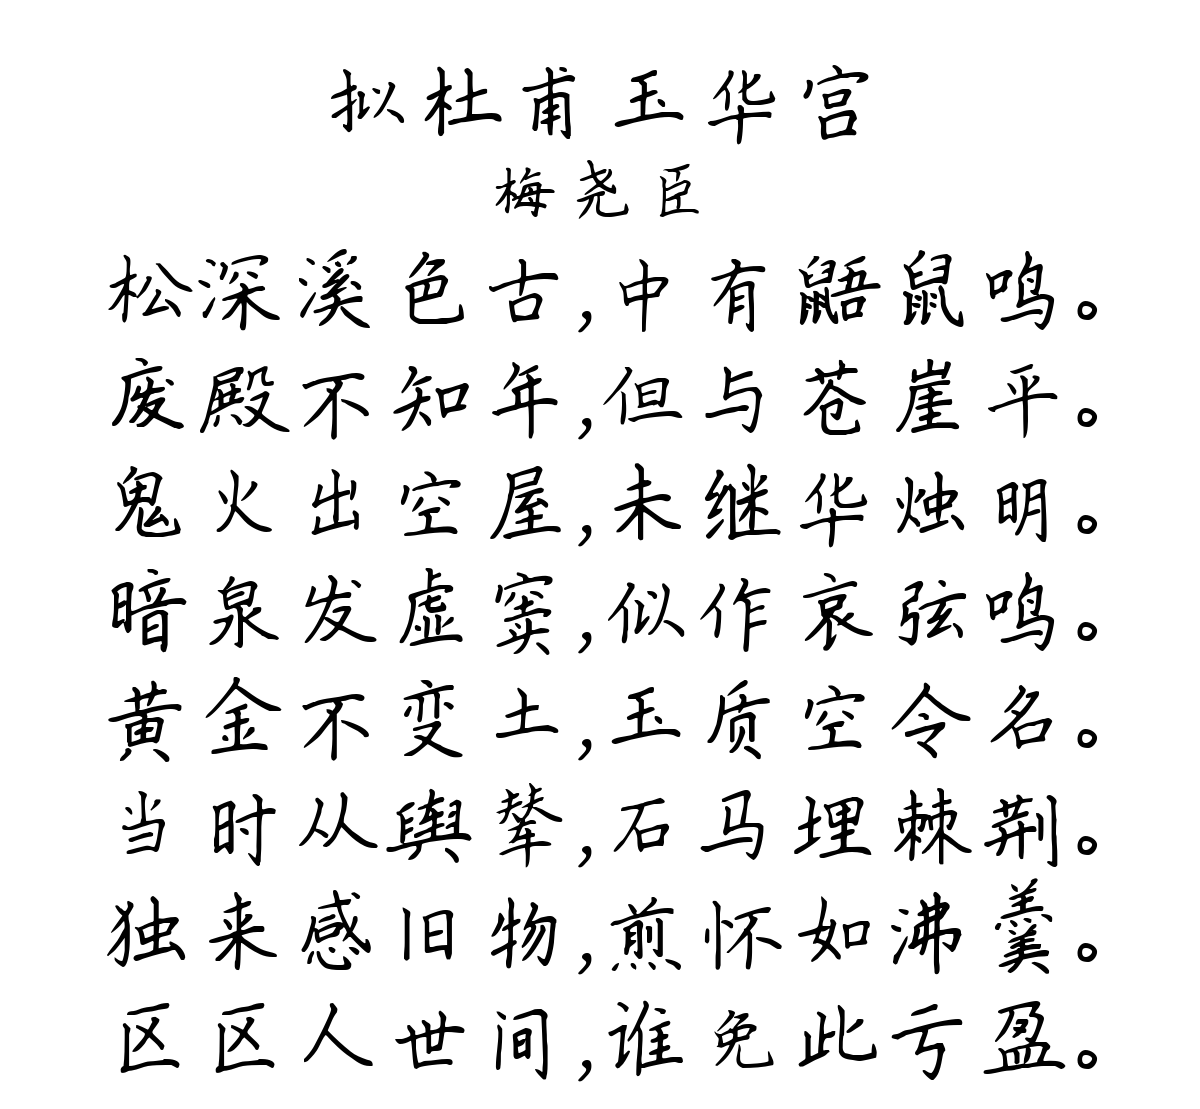 拟杜甫玉华宫
梅尧臣
松深溪色古,中有鼯鼠鸣。
废殿不知年,但与苍崖平。
鬼火出空屋,未继华烛明。
暗泉发虚窦,似作哀弦鸣。
黄金不变土,玉质空令名。
当时从舆辇,石马埋棘荆。
独来感旧物,煎怀如沸羹。
区区人世间,谁免此亏盈。